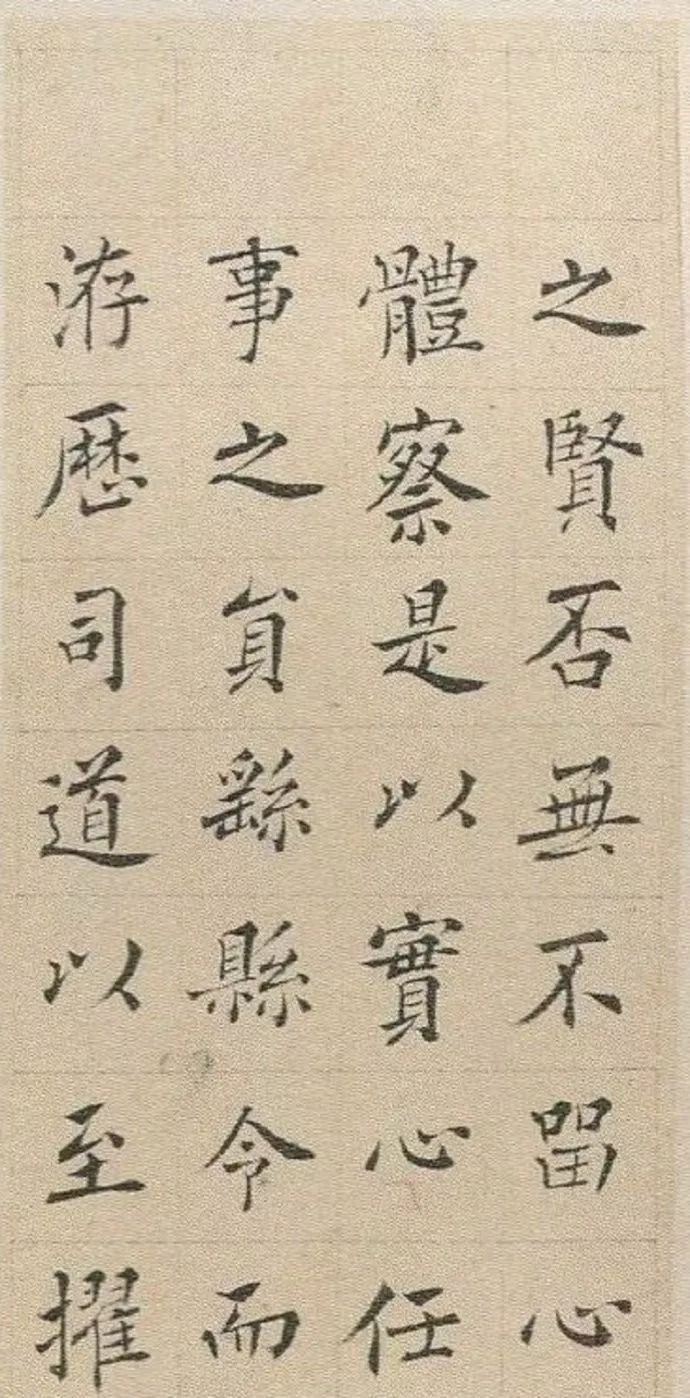 之賢否無不留心
體察是以實心任
事之貟繇縣令而
洊歴司道以至擢